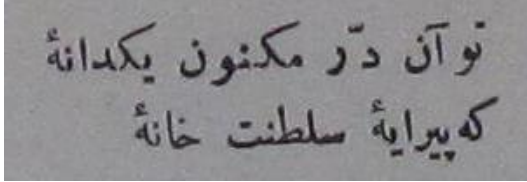 تو آن دّر مکنون یکدانهٔ
که پیرایهٔ سلطنت خانهٔ